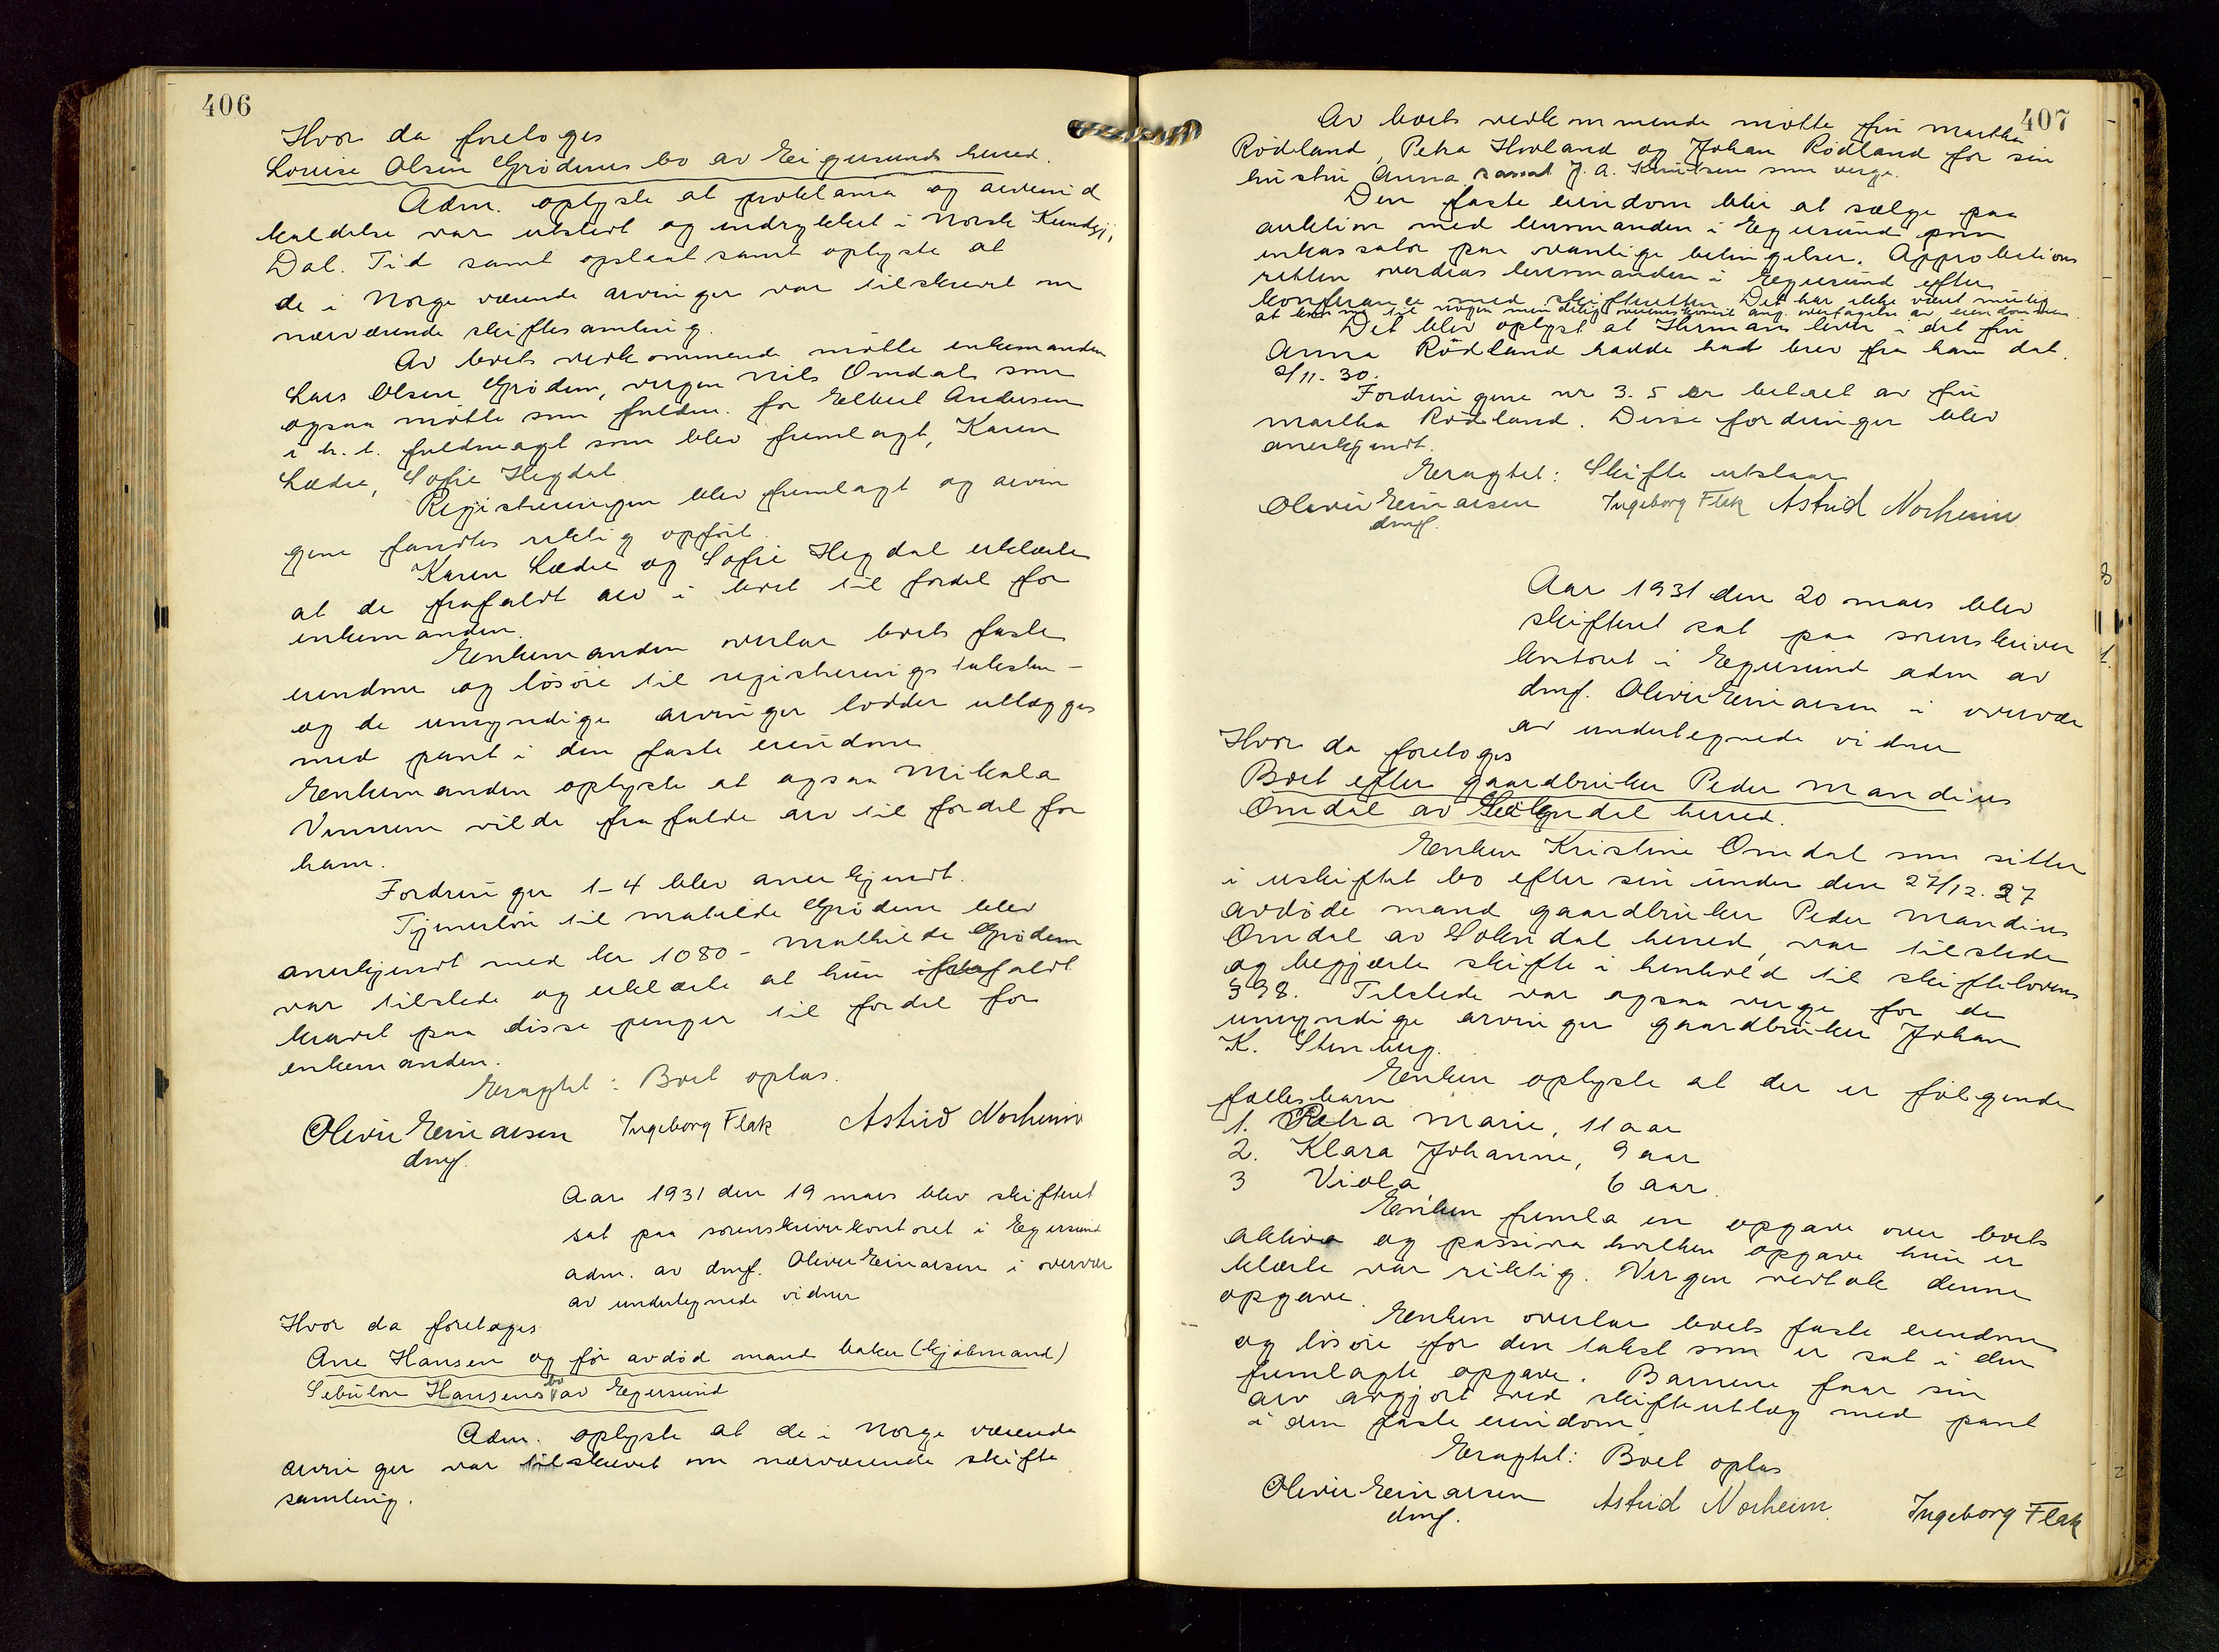 406
Hvor da foretoges
Louise Olsen Grødems bo av Eigersunds herred.
Adm. oplyste at proklama og arveind
kaldelse var utstedt og indrykket i Norsk Kundgj.,
Dal. Tid samt opslaat samt oplyste at
de i Norge værende arvinger var tilskrevet om
nærværende skiftesamling.
Av boets vedkommende møtte enkemanden
Lars Olsen Grødem, vergen Nils Omdal som
ogsaa møtte som fuldm. for Elbert Andersen
i h. t. fuldmagt som blev fremlagt, Karen
Lædre, Sofie Hegdal.
Registreringen blev fremlagt og arvin
gene fandtes riktig opført.
Karen Lædre og Sofie Hegdal erklærte
at de frafaldt arv i boet til fordel for
enkemanden.
Enkemanden overtar boets faste
eiendom og løsøre til registrerings taksten –
og de umyndige arvinger lodder utlægges
med pant i den faste eiendom
Enkemanden oplyste at ogsaa Mikala
Vinnem vilde frafalde arv til fordel for
ham.
Fordringer 1–4 blev anerkjendt.
Tjenerløn til Matilde Grødem blev
anerkjendt med kr 1080 – Mathilde Grødem
var tilstede og erklærte at hun frafaldt
kravet paa disse penger til fordel for
enkemanden.
Eragtet: Boet optas.
Olevir Einarsen Ingeborg Flak Astrid Norheim
dmf.
Aar 1931 den 19 mars blev skifteret
sat paa sorenskriverkontoret i Egersund
adm. av dmf. Olevir Einarsen i overvær
av undertegnede vidner
Hvor da foretoges
Ane Hansen og før avdød mand baker (kjøbmand)
Sebulon Hansens bo av Egersund
Adm. oplyste at de i Norge værende
arvinger var tilskrevet om nærværende skifte
samling.
407
Av boets vedkommende møtte fru Martha
Rødland, Petra Hovland og Johan Rødland for sin
hustru Anna samt J. A. Knutsen som verge.
Den faste eiendom blir at sælge paa
auktion med lensmanden i Egersund som
inkassator paa vanlige betingelser. Approbations
retten overdras lensmanden i Egersund efter
konferance med skifteretten. Det har ikke været mulig
at komme til nogen mindelig overenskomst ang. overtagelse av eiendommen.
Det blev oplyst at Herman lever i det fru
Anna Rødland hadde hat brev fra ham dat.
2/11. 30.
Fordringene nr 3. 5 er betalt av fru
Martha Rødland. Disse fordringer blev
anerkjendt.
Eragtet: Skifte utstaar
Olevir Einarsen Ingeborg Flak Astrid Norheim
dmf.
Aar 1931 den 20 mars blev
skifteret sat paa sorenskriver
kontoret i Egersund adm av
dmf. Olevir Einarsen i overvær
av undertegnede vidner
Hvor da foretoges
Boet efter gaardbruker Peder Mandius
Omdal av Sokndal herred.
Enken Kristine Omdal som sitter
i uskiftet bo efter sin under den 27/12. 27
avdøde mand gaardbruker Peder Mandius
Omdal av Sokndal herred, var tilstede
og begjærte skifte i henhold til skiftelovens
§ 98. Tilstede var ogsaa verge for de
umyndige arvinger gaardbruker Johan
K. Stenberg.
Enken oplyste at der er følgende
fællesbarn
1. Petra Marie, 11 aar
2. Klara Johanne, 9 aar
3 Viola 6 aar.
Enken fremla en opgave over boets
aktiva og passiva hvilken opgave hun er
klærte var riktig. Vergen vedtok denne
opgave.
Enken overtar boets faste eiendom
og løsøre for den takst som er sat i den
fremlagte opgave. Barnene faar sin
arv avgjort ved skifteutlæg med pant
i den faste eiendom.
Eragtet: Boet optas
Olevir Einarsen Astrid Norheim. Ingeborg Flak
dmf.